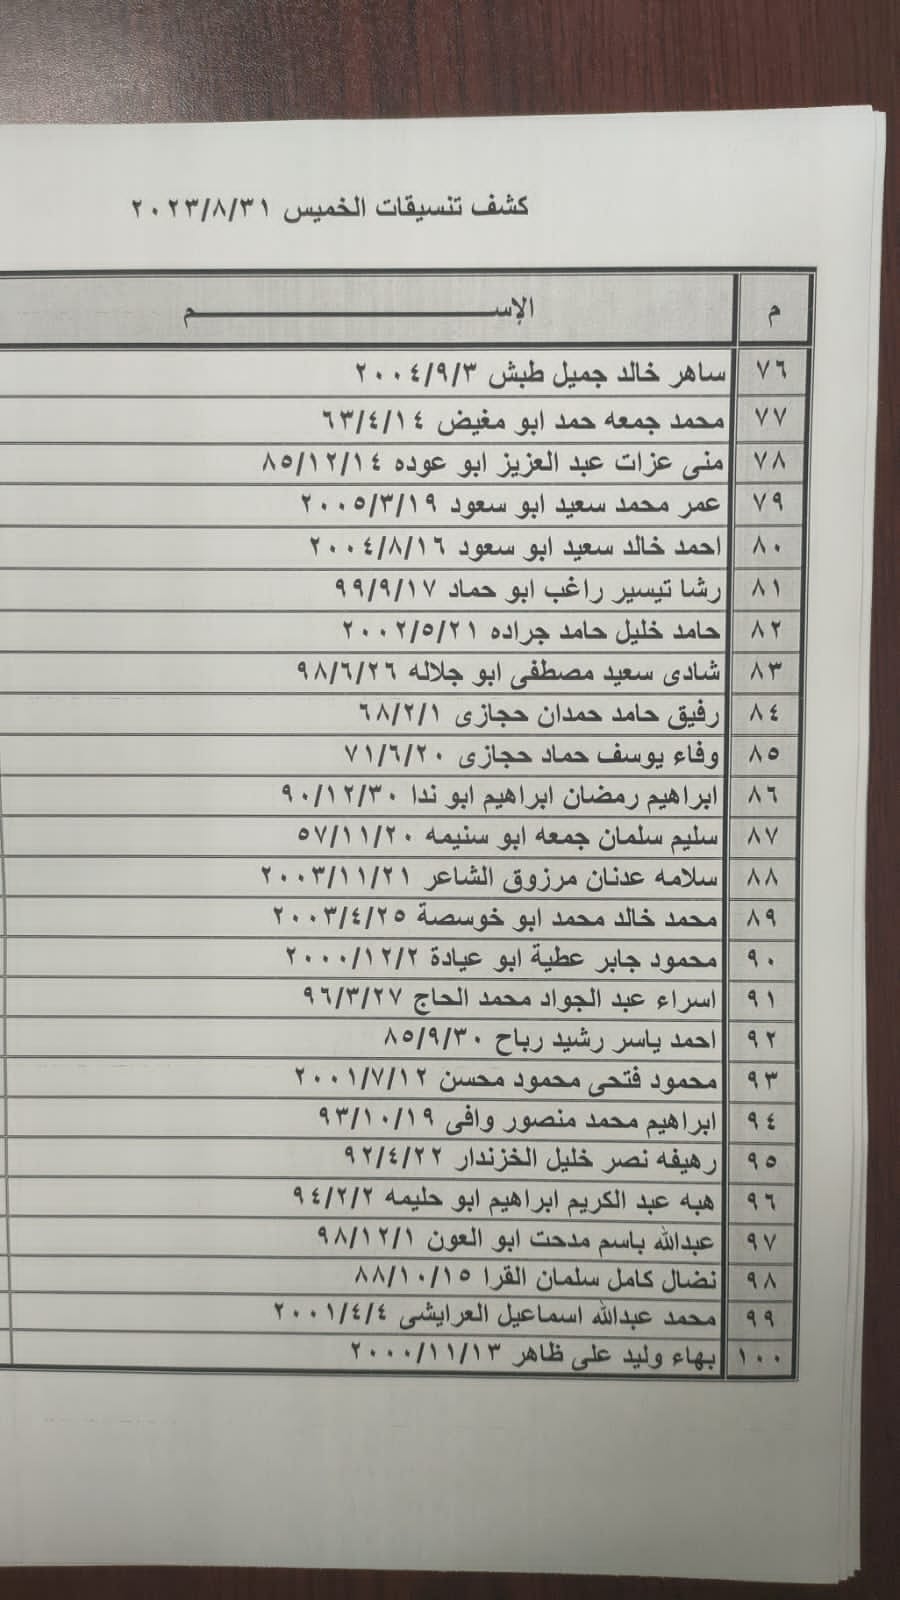 كشف تنسيقات الخميس ٢٠٢٣/٨/٣١
م الإسم
٧٦ ساهر خالد جميل طبش ٢٠٠٤/٩/٣
٧٧ محمد جمعه حمد ابو مغيض ٦٣/٤/١٤
٧٨ منى عزات عبد العزيز ابو عوده ٨٥/١٢/١٤
٧٩ عمر محمد سعيد ابو سعود ٢٠٠٥/٣/١٩
٨٠ احمد خالد سعيد ابو سعود ٢٠٠٤/٨/١٦
٨١ رشا تيسير راغب ابو حماد ٩٩/٩/١٧
٨٢ حامد خليل حامد جراده ٢٠٠٢/٥/٢١
٨٣ شادى سعيد مصطفى ابو جلاله ٩٨/٦/٢٦
٨٤ رفيق حامد حمدان حجازى ٦٨/٢/١
٨٥ وفاء يوسف حماد حجازى ٧١/٦/٢٠
٨٦ ابراهيم رمضان ابراهيم ابو ندا ٩٠/١٢/٣٠
٨٧ سليم سلمان جمعه ابو سنيمه ٥٧/١١/٢٠
٨٨ سلامه عدنان مرزوق الشاعر ٢٠٠٣/١١/٢١
٨٩ محمد خالد محمد ابو خوسصة ٢٠٠٣/٤/٢٥
٩٠ محمود جابر عطية ابو عيادة ٢٠٠٠/١٢/٢
٩١ اسراء عبد الجواد محمد الحاج ٩٦/٣/٢٧
٩٢ احمد ياسر رشيد رباح ٨٥/٩/٣٠
٩٣ محمود فتحى محمود محسن ٢٠٠١/٧/١٢
٩٤ ابراهيم محمد منصور وافى ٩٣/١٠/١٩
٩٥ رهيفه نصر خليل الخزندار ٩٢/٤/٢٢
٩٦ هبه عبد الكريم ابراهيم ابو حليمه ٩٤/٢/٢
٩٧ عبدالله باسم مدحت ابو العون ٩٨/١٢/١
٩٨ نضال كامل سلمان القرا ٨٨/١٠/١٥
٩٩ محمد عبدالله اسماعيل العرايشى ٢٠٠١/٤/٤
١٠٠ بهاء وليد على ظاهر ٢٠٠٠/١١/١٣